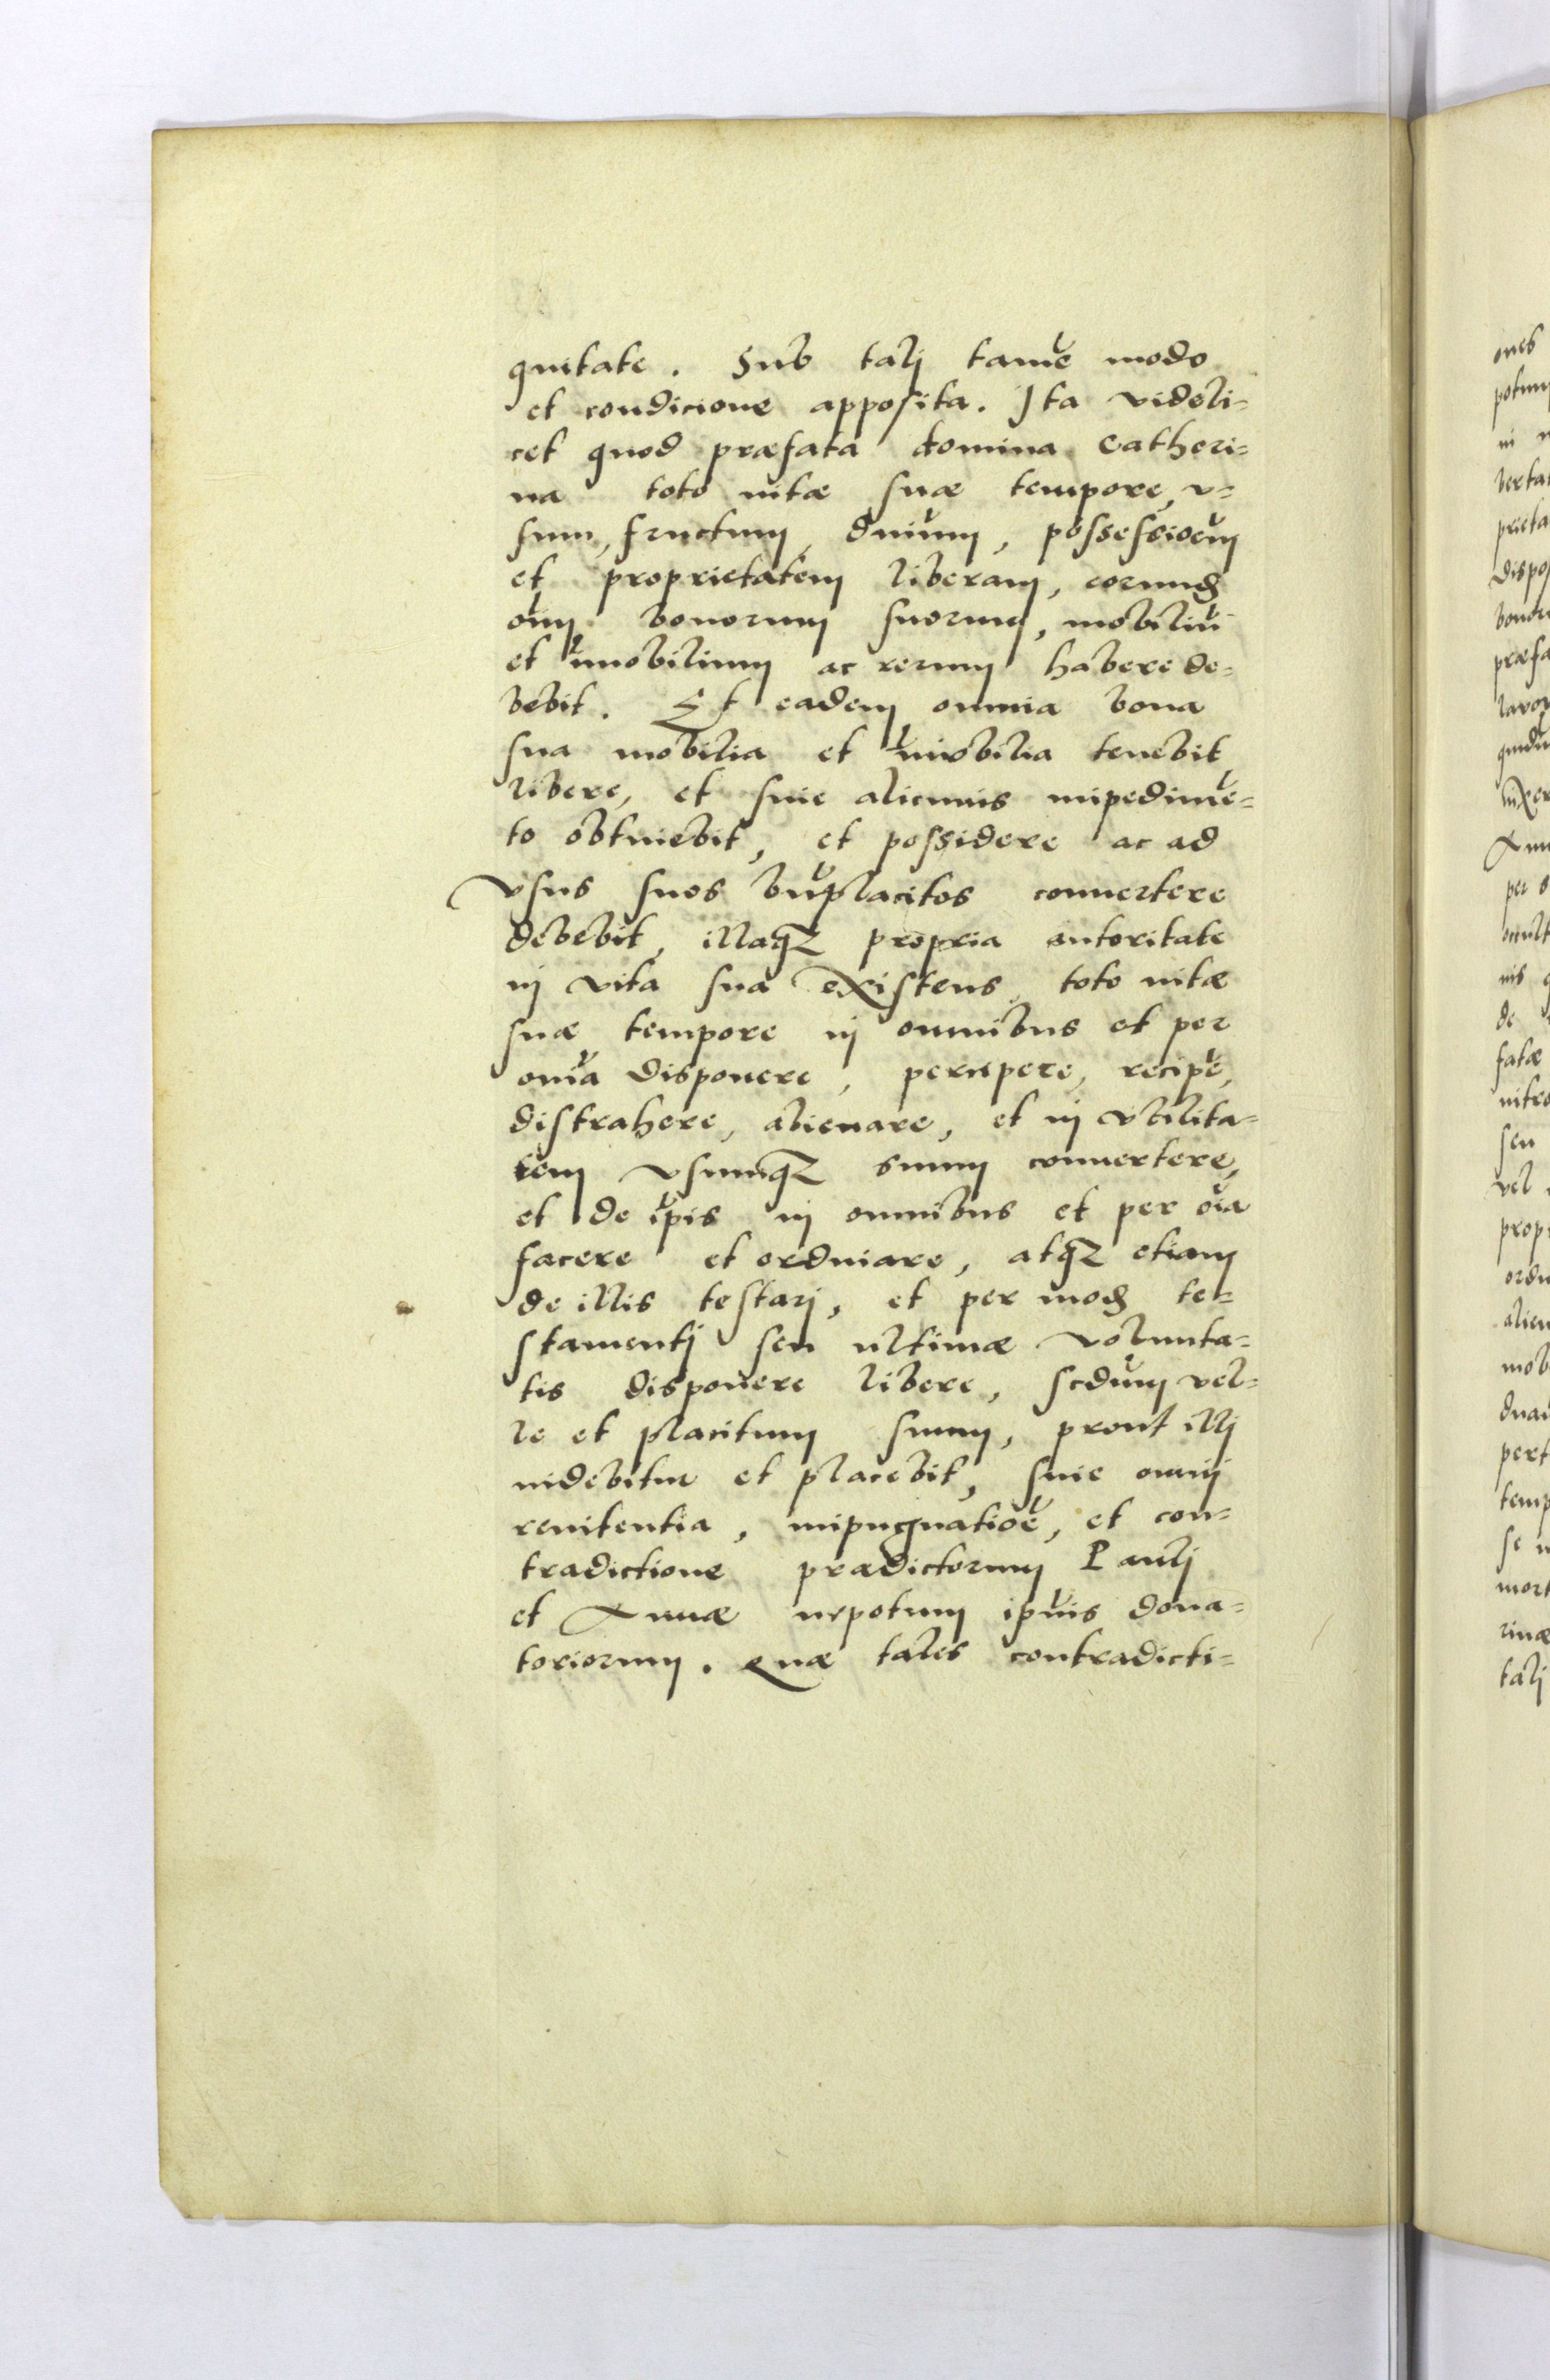 quitate. Sub talj tamē modo
et condicione apposita. Ita videli=
cet quod præfata domina Catheri=
na toto uitæ suæ tempore, v=
sum, fructum, dnium, possessioem
et proprietatem liberam, eorund
oim bonorum suorum, mobiliū
et imobilium ac rerum habere de=
bebit. Et eadem omnia bona
sua mobilia et imobilia tenebit
libere, et sine alicuius impedimē=
to obtinebit, et possidere ac ad
vsus suos bnplacitos conuertere
debebit, illaqz propria autoritate
in vita sua existens toto uitæ
suæ tempore in omnibus et per
omia disponere, percipere, recipe,
distrahere, alienare, et in vtilita=
tem vsumqz suum conuertere,
et de ipis in omnibus et per oia
facere et ordinare, atqz etiam
de illis testarj, et per mod te=
stamentj seu ultimæ volunta=
tis disponere libere, scdum vel=
le et placitum suum, prout illj
uidebitur et placebit, sine omnj
renitentia, impugnatioē, et con=
tradictione prædictorum Paulj
et Annæ nepotum ipius dona=
toriorum. Quæ tales contradicti=
ones
in
per s
nis
de
fatæ
seu
vel
prop
alien
mob
pert
temp
se
mort
rinæ
talj